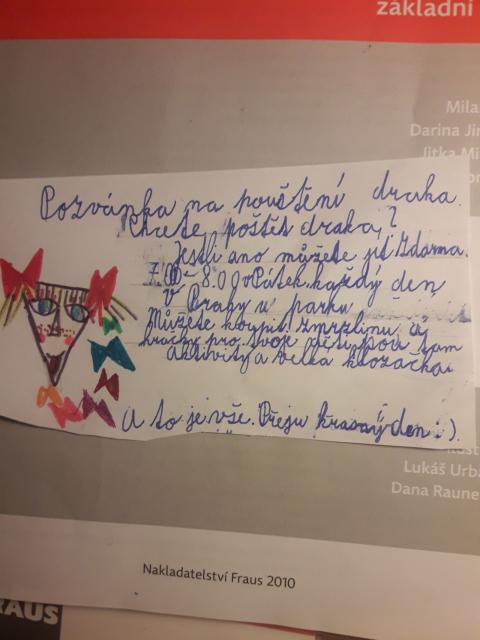 základní
Mila
Darina Jir
Jitka Mi
Pozvánka na pouštění draka.
Chcete poštět draka?
Jestli ano můžete jít zdarma.
8.00 v Pátek. každý den
v Prahy u parku
Můžete koupit zmrzlinu a
hračky pro svoje děti jsou tam
aktivity a velká klozačka.
A to je vše. Přeju krasný den :).
Lukáš Urba
Dana Raune
Nakladatelství Fraus 2010
RAUS